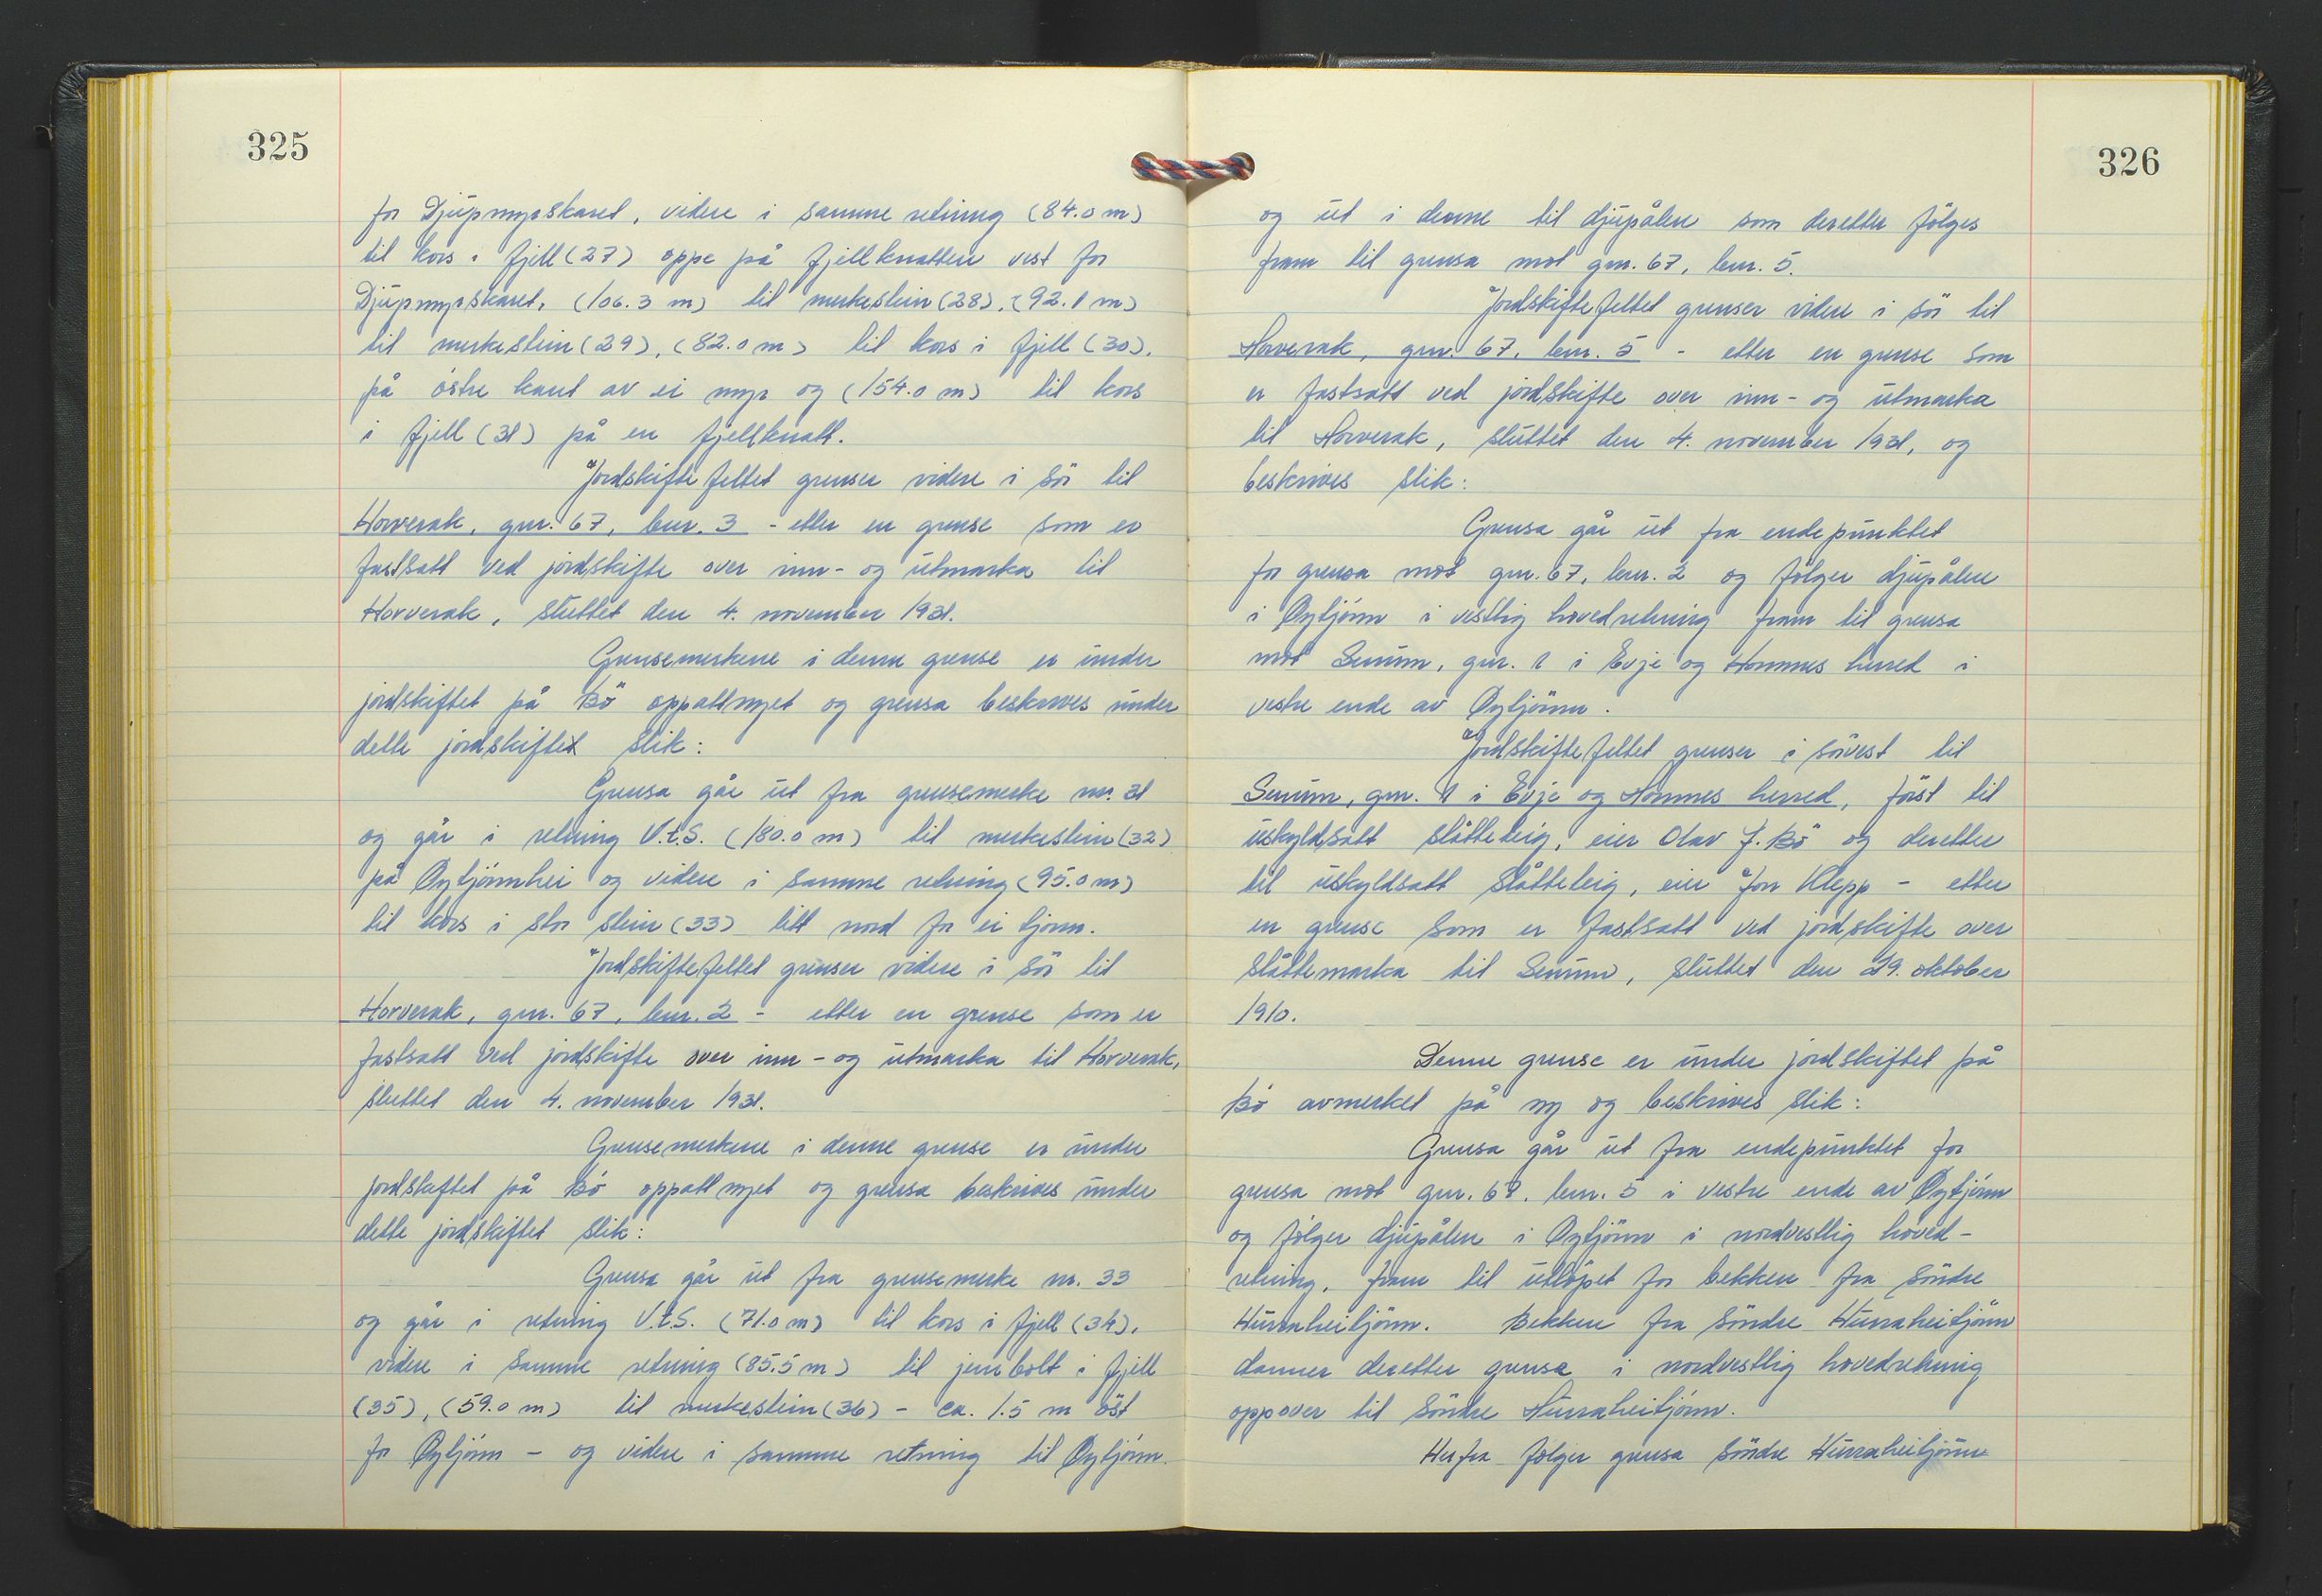 325
for Djupmyrskaret, videre i samme retning (84.0 m)
til kors i fjell (27) oppe på fjellknatten vest for
Djupmyrskaret, (106.3 m) til merkestein (28), (92.1 m)
til merkestein (29), (82.0 m) til kors i fjell (30),
på østre kant av ei myr og (154.0 m) til kors
i fjell (31) på en fjellknatt.
Jordskiftefeltet grenser videre i sör til
Horverak, gnr. 67, bnr. 3 - etter en grense som er
fastsatt ved jordskifte over inn- og utmarka til
Horverak, sluttet den 4. november 1931.
Grensemerkene i denne grense er under
jordskiftet på Bö oppattnyet og grensa beskrives under
dette jordskiftet slik:
Grensa går ut fra grensemerke nr. 31
og går i retning V.t.S. (180.0 m) til merkestein (32)
på Øytjönnhei og videre i samme retning (95.0 m)
til kors i stor stein (33) litt nord for ei tjönn.
Jordskiftefeltet grenser videre i sör til
Horverak, gnr. 67, bnr. 2 - etter en grense som er
fastsatt ved jordskifte over inn- og utmarka til Horverak,
sluttet den 4. november 1931.
Grensemerkene i denne grense er under
jordskiftet på Bö oppattnyet og grensa beskrives under
dette jordskiftet slik:
Grensa går ut fra grensemerke nr. 33
og går i retning V.t.S. (71.0 m) til kors i fjell (34),
videre i samme retning (85.5 m) til jernbolt i fjell
(35), (59.0 m) til merkestein (36) - ca. 1.5 m öst
for Øytjönn - og videre i samme retning til Øytjönn
326
og ut i denne til djupålen som deretter fölges
fram til grensa mot gnr. 67, bnr. 5.
Jordskiftefeltet grenser videre i sör til
Horverak, gnr. 67, bnr. 5 - etter en grense som
er fastsatt ved jordskifte over inn- og utmarka
til Horverak, sluttet den 4. november 1931, og
beskrives slik:
Grensa går ut fra endepunktet
for grensa mot gnr. 67, bnr. 2 og fölger djupålen
i Øytjönn i vestlig hovedretning fram til grensa
mot Senum, gnr. 1 i Evje og Hornnes herred i
vestre ende av Øytjönn.
Jordskiftefeltet grenser i sörvest til
Senum, gnr. 1 i Evje og Hornnes herred, först til
uskyldsatt slåtteteig, eier Olav J. Bö og deretter
til uskyldsatt slåtteteig, eier Jon Klepp - etter
en grense som er fastsatt ved jordskifte over
slåttemarka til Senum, sluttet den 29. oktober
1910.
Denne grense er under jordskiftet på
Bö avmerket på ny og beskrives slik:
Grensa går ut fra endepunktet for
grensa mot gnr. 67, bnr. 5 i vestre ende av Øytjönn
og fölger djupålen i Øytjönn i nordvestlig hoved-
retning, fram til utlöpet for bekken fra söndre
Hurraheitjönn. Bekken fra söndre Hurraheitjönn
danner deretter grensa i nordvestlig hovedretning
oppover til söndre Hurraheitjönn.
Herfra fölger grensa söndre Hurraheitjönn